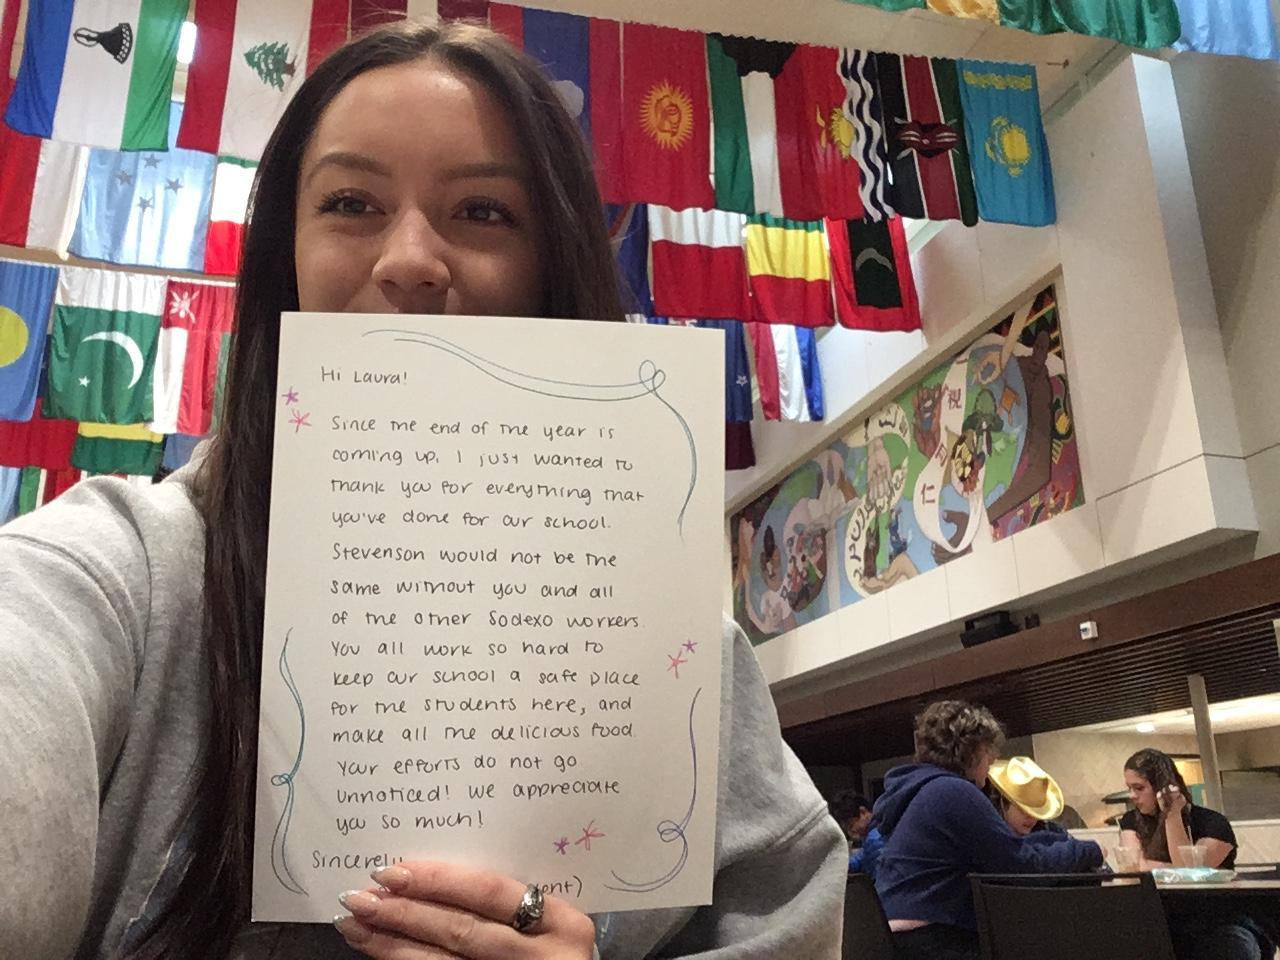 Hi Laura!
Since the end of the year is
coming up, I just wanted to
thank you for everything that
you've done for our school.
Stevenson would not be the
same without you and all
of the other Sodexo workers.
You all work so hard to
keep our school a safe place
for the students here, and
make all the delicious food.
Your efforts do not go
unnoticed! We appreciate
you so much!
Sincerely
祝
仁